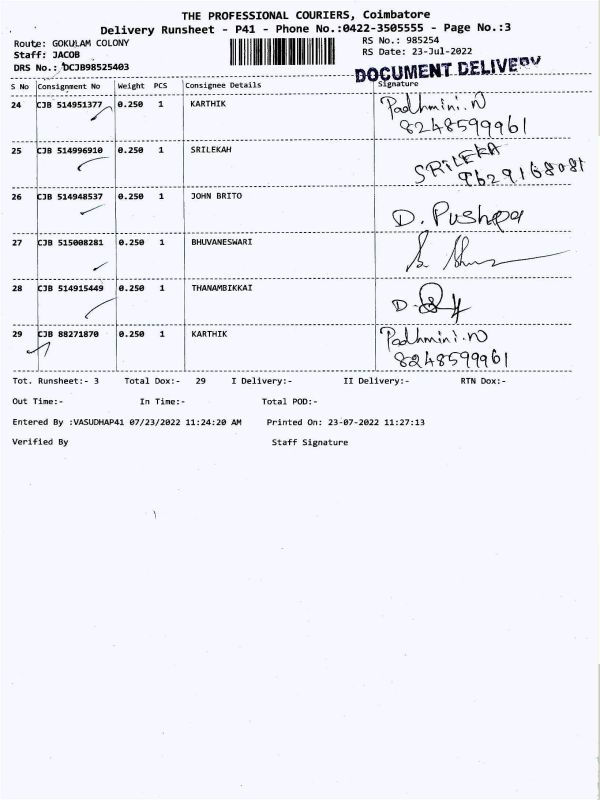 THE PROFESSIONAL COURIERS, Coimbatore
Delivery Runsheet - P41 - Phone No.:0422-3505555 - Page No.:3
Route: GOKULAM COLONY RS No.: 985254
Staff: JACOB RS Date: 23-Jul-2022
DRS No.: DCJB98525403
DOCUMENT DELIVERY
S No Consignment No Weight PCS Consignee Details Signature
24 CJB 514951377 0.250 1 KARTHIK Padhmini.N
8248599961
25 CJB 514996910 0.250 1 SRILEKAH SRILEKA
9629168081
26 CJB 514948537 0.250 1 JOHN BRITO D. Pushpa
27 CJB 515008281 0.250 1 BHUVANESWARI
28 CJB 514915449 0.250 1 THANAMBIKKAI D.
29 CJB 88271870 0.250 1 KARTHIK Padhmini.N
8248599961
Tot. Runsheet:- 3 Total Dox:- 29 I Delivery:- II Delivery:- RTN Dox:-
Out Time:- In Time:- Total POD:-
Entered By :VASUDHAP41 07/23/2022 11:24:20 AM Printed On: 23-07-2022 11:27:13
Verified By Staff Signature